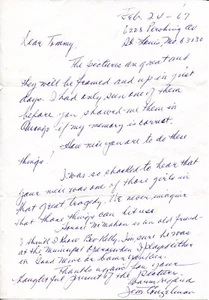 Feb. 20 - 67
6228 Pershing Ave
St. Louis, Mo. 63130
Dear Tommy.
The pictures are great and
they will be framed and up in just
days. I had only seen one of them
before you showed me them in
Chicago if my memory is correct.
How nice you are to do these
things!
I was so shocked to hear that
your niece was one of those girls in
that great tragedy. We never imagine
that those things can hit us.
McMahon is an old friend.
I should know Bev Kelly. I'm sure he was
at the Municipal Opera
in Good News
Thanks again for your
thoughtful of the pictures.
Warm regards
Jim Conzelman